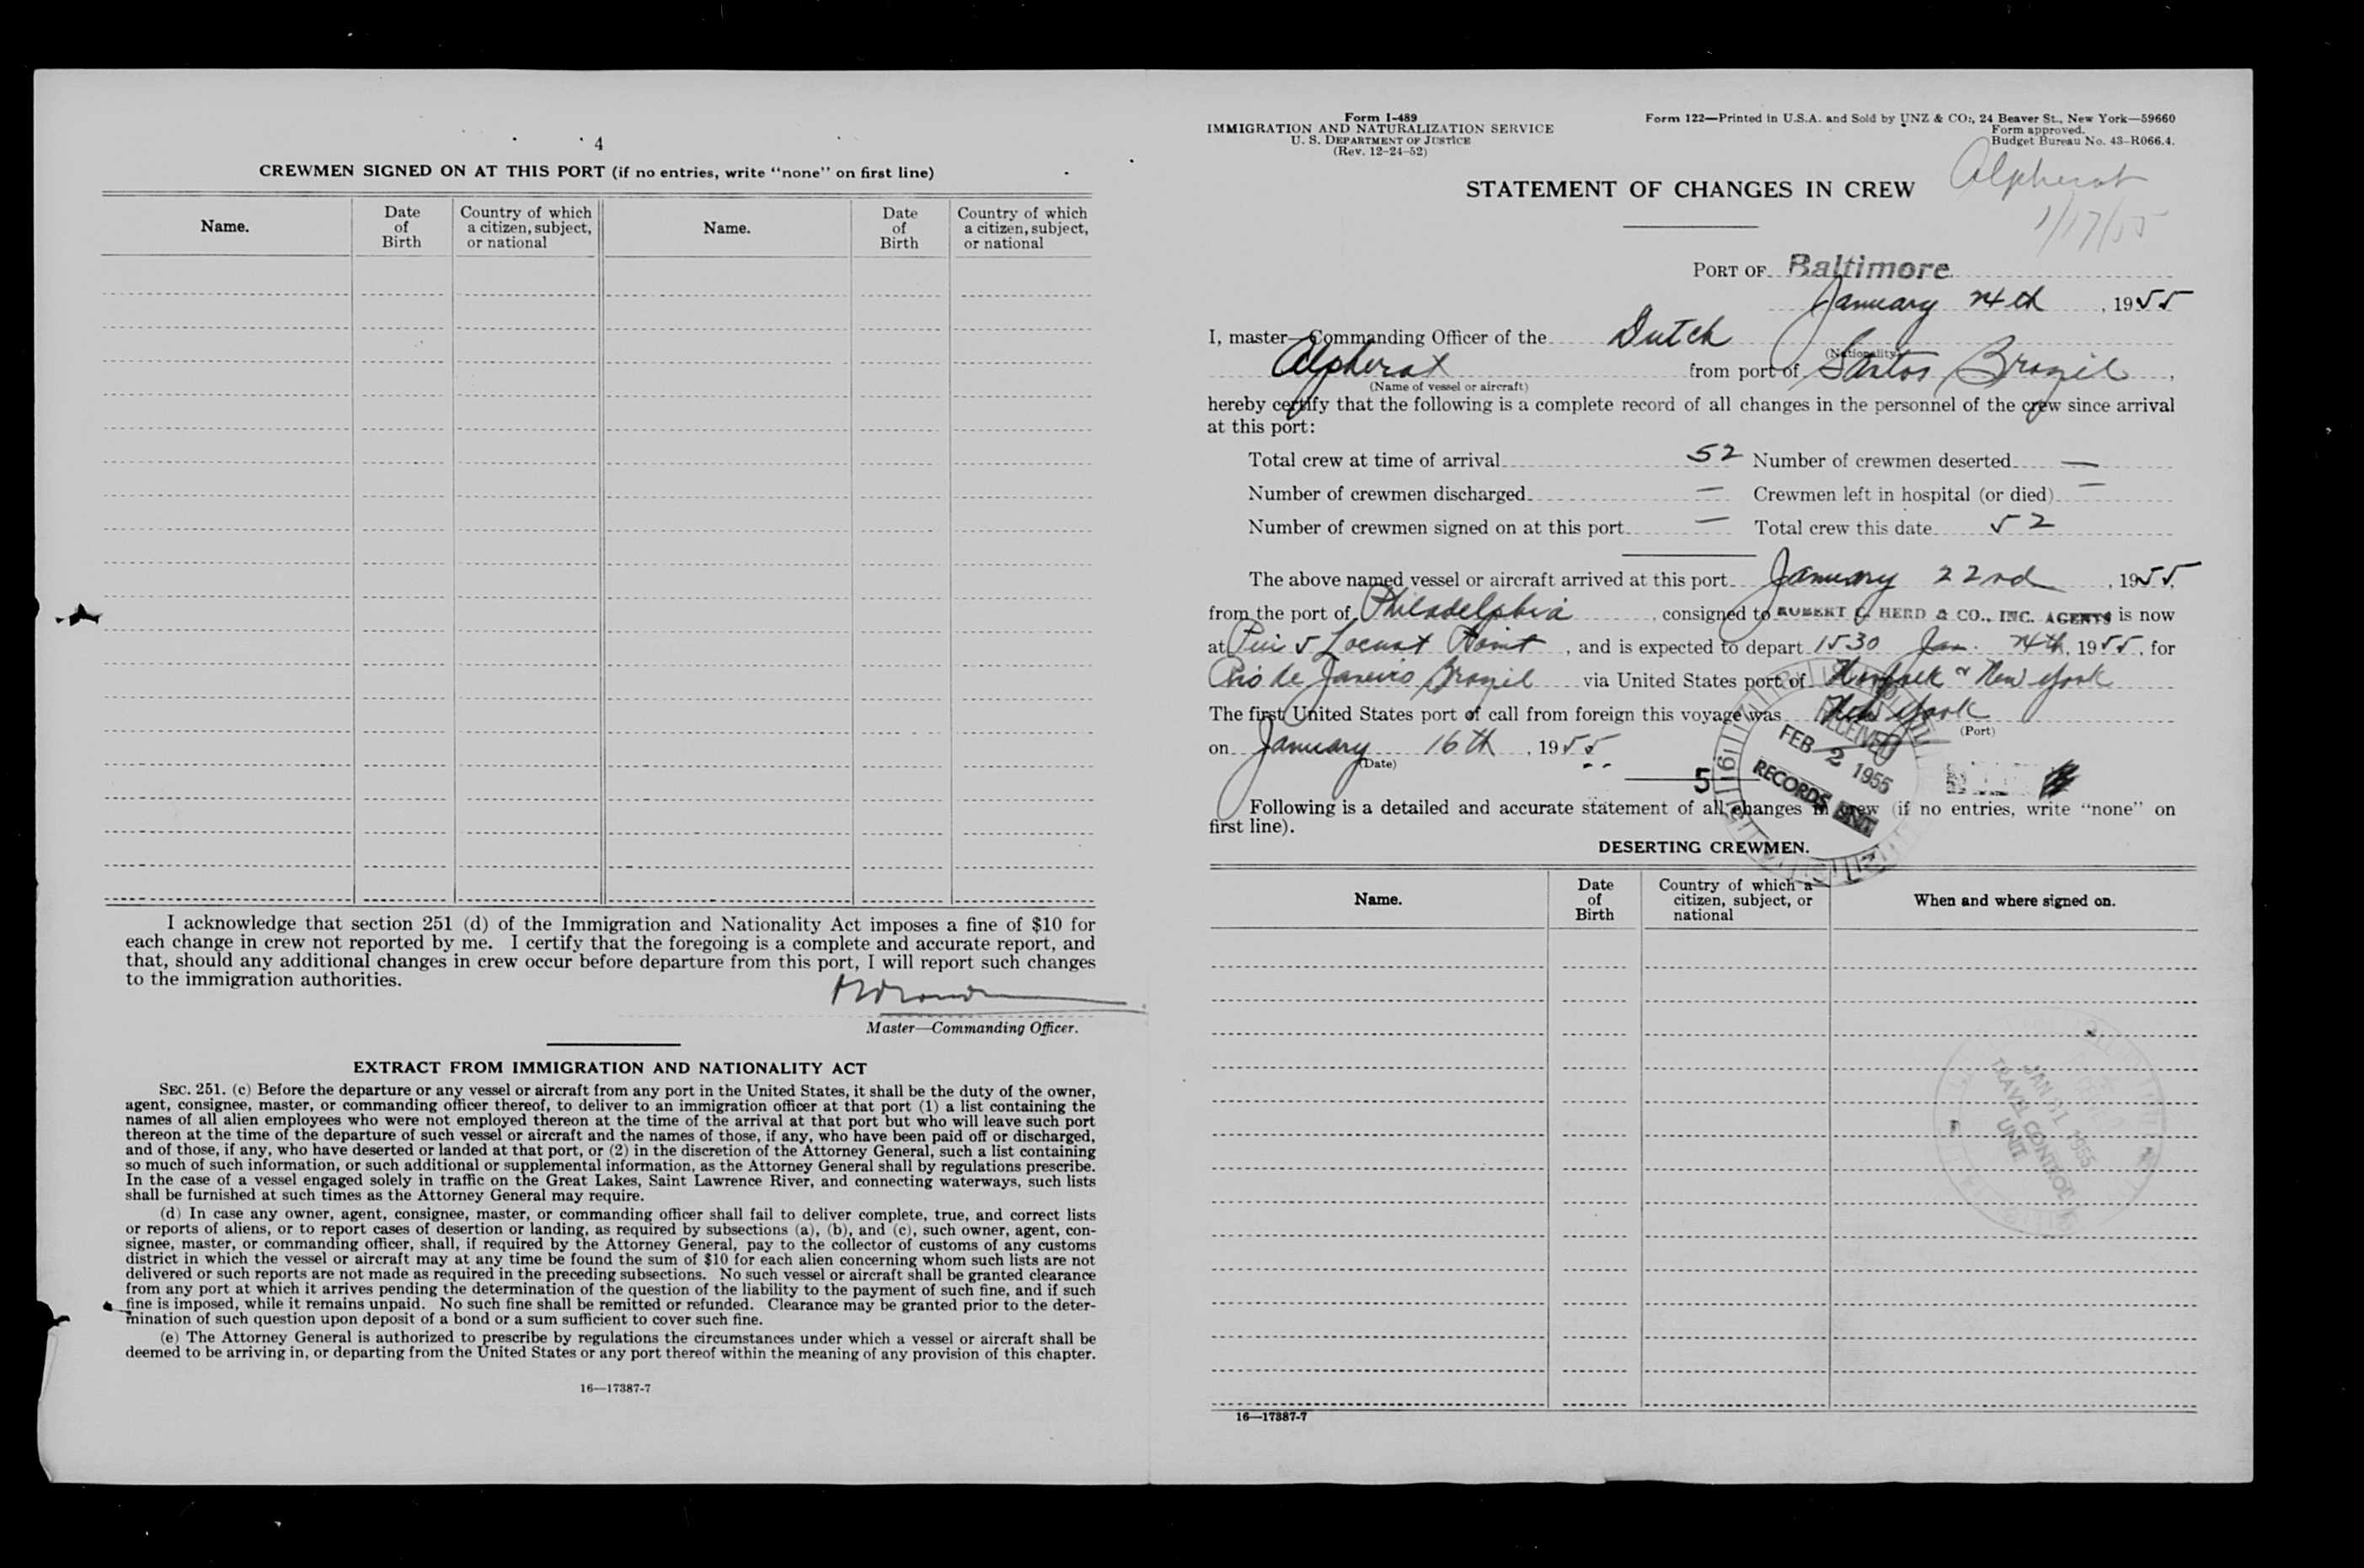 4
CREWMEN SIGNED ON AT THIS PORT (if no entries, write “none” on first line)
Name. Date of Birth Country of which a citizen, subject, or national Name. Date of Birth Country of which a citizen, subject, or national
I acknowledge that section 251 (d) of the Immigration and Nationality Act imposes a fine of $10 for
each change in crew not reported by me. I certify that the foregoing is a complete and accurate report, and
that, should any additional changes in crew occur before departure from this port, I will report such changes
to the immigration authorities.
Master—Commanding Officer.
EXTRACT FROM IMMIGRATION AND NATIONALITY ACT
SEC. 251. (c) Before the departure or any vessel or aircraft from any port in the United States, it shall be the duty of the owner,
agent, consignee, master, or commanding officer thereof, to deliver to an immigration officer at that port (1) a list containing the
names of all alien employees who were not employed thereon at the time of the arrival at that port but who will leave such port
thereon at the time of the departure of such vessel or aircraft and the names of those, if any, who have been paid off or discharged,
and of those, if any, who have deserted or landed at that port, or (2) in the discretion of the Attorney General, such a list containing
so much of such information, or such additional or supplemental information, as the Attorney General shall by regulations prescribe.
In the case of a vessel engaged solely in traffic on the Great Lakes, Saint Lawrence River, and connecting waterways, such lists
shall be furnished at such times as the Attorney General may require.
(d) In case any owner, agent, consignee, master, or commanding officer shall fail to deliver complete, true, and correct lists
or reports of aliens, or to report cases of desertion or landing, as required by subsections (a), (b), and (c), such owner, agent, con-
signee, master, or commanding officer, shall, if required by the Attorney General, pay to the collector of customs of any customs
district in which the vessel or aircraft may at any time be found the sum of $10 for each alien concerning whom such lists are not
delivered or such reports are not made as required in the preceding subsections. No such vessel or aircraft shall be granted clearance
from any port at which it arrives pending the determination of the question of the liability to the payment of such fine, and if such
fine is imposed, while it remains unpaid. No such fine shall be remitted or refunded. Clearance may be granted prior to the deter-
mination of such question upon deposit of a bond or a sum sufficient to cover such fine.
(e) The Attorney General is authorized to prescribe by regulations the circumstances under which a vessel or aircraft shall be
deemed to be arriving in, or departing from the United States or any port thereof within the meaning of any provision of this chapter.
16—17387-7
Form I-489
IMMIGRATION AND NATURALIZATION SERVICE
U. S. DEPARTMENT OF JUSTICE
(Rev. 12-24-52)
Form 122—Printed in U.S.A. and Sold by UNZ & CO., 24 Beaver St., New York—59660
Form approved.
Budget Bureau No. 43-R066.4.
Alpherat
1/17/55
STATEMENT OF CHANGES IN CREW
PORT OF Baltimore
January 24th, 1955
I, master—Commanding Officer of the Dutch
(Nationality)
Alpherat from port of Santos Brazil,
(Name of vessel or aircraft)
hereby certify that the following is a complete record of all changes in the personnel of the crew since arrival
at this port:
Total crew at time of arrival 52 Number of crewmen deserted —
Number of crewmen discharged — Crewmen left in hospital (or died) —
Number of crewmen signed on at this port — Total crew this date 52
The above named vessel or aircraft arrived at this port January 22nd, 1955,
from the port of Philadelphia, consigned to ROBERT C. HERD & CO., INC. AGENTS is now
at Pier 5 Locust Point, and is expected to depart 1530 Jan. 24th, 1955, for
Rio de Janeiro Brazil via United States port of Norfolk & New York
The first United States port of call from foreign this voyage was New York
(Port)
on January 16th, 1955
(Date)
5
RECEIVED
FEB 2 1955
RECORDS UNIT
Following is a detailed and accurate statement of all changes in crew (if no entries, write “none” on
first line).
DESERTING CREWMEN.
Name. Date of Birth Country of which a citizen, subject, or national When and where signed on.
JAN 31 1955
TRAVEL CONTROL
UNIT
16—17387-7